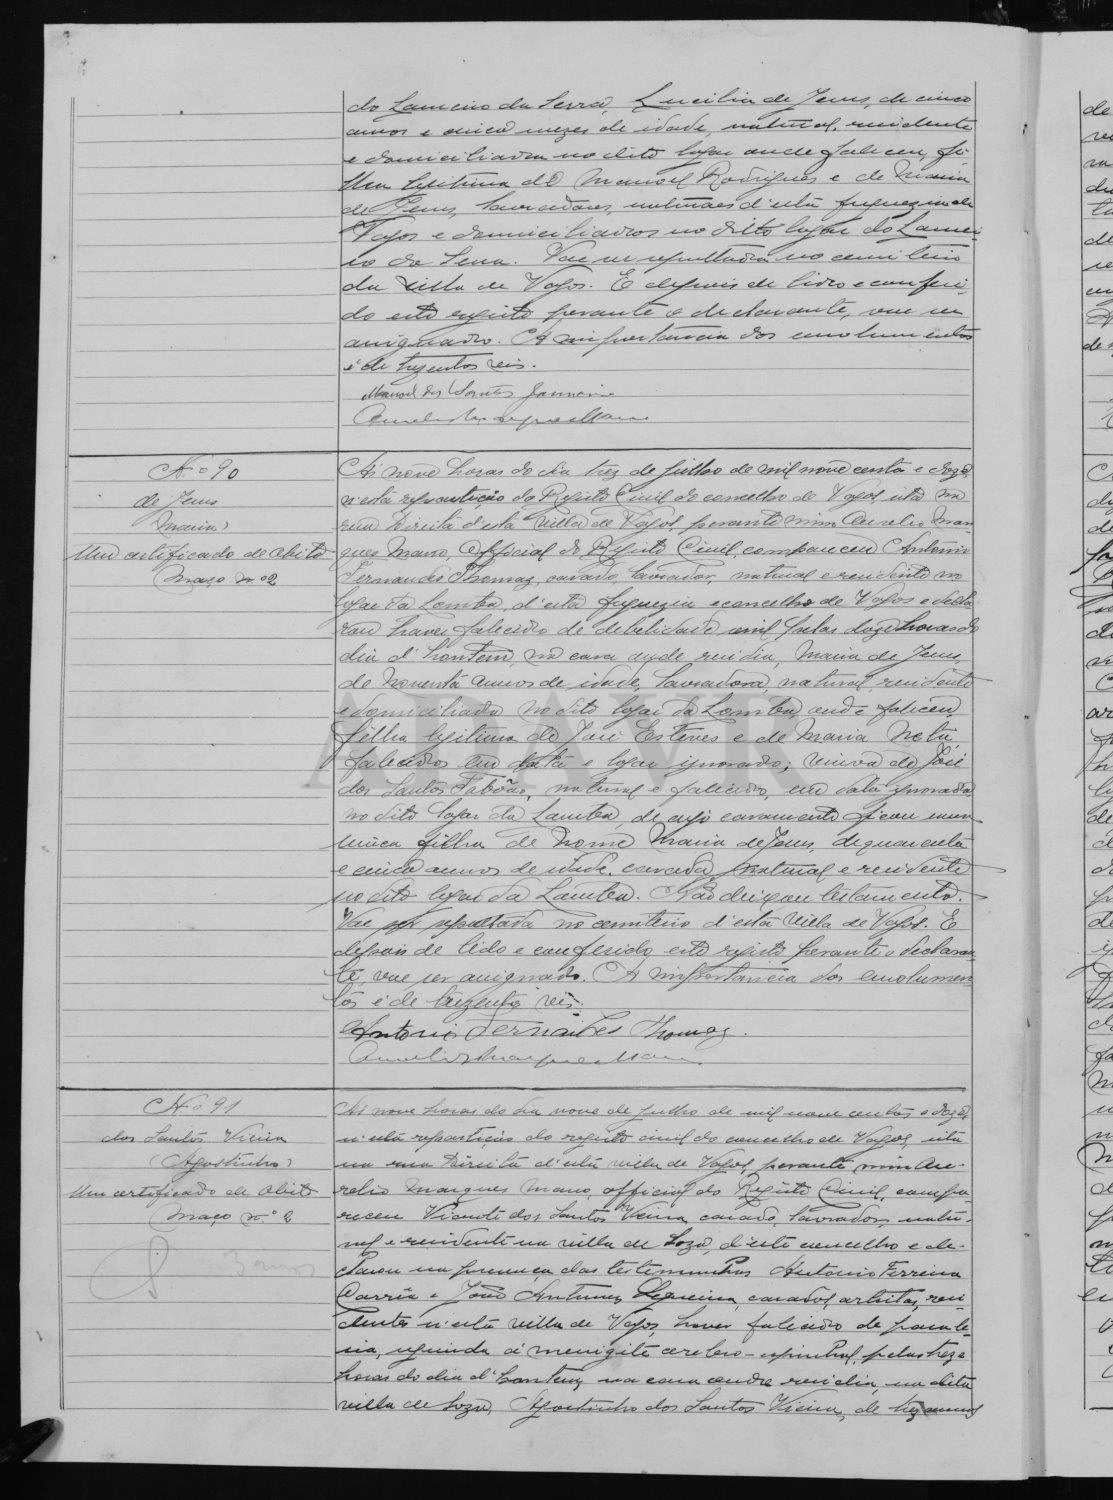 do Lameiro da Serra, Lucilia de Jesus, de cinco
annos e cinco mezes de idade, natural, residente
e domiciliada no dito logar onde faleceu, fi-
lha legitima de Manoel Rodrigues e de Maria
de Jesus, lavradores, naturaes d'esta freguezia de
Vagos e domiciliados no dito logar do Lamei-
ro da Serra. Vae ser sepultada no cemiterio
da villa de Vagos. E depois de lido e conferi-
do este registo perante o declarante, vae ser
assignado. A importancia dos emolumentos
é de trezentos reis.
Manoel dos Santos
Nº 90
de Jesus
(Maria)
Um certificado de obito
Maço nº 2
Ás nove horas do dia trez de julho de mil nove centos e doze,
n'esta repartição do Registo Civil do concelho de Vagos, sita na
rua Direita d'esta villa de Vagos, perante mim Aurelio Mar-
ques Mano, Official do Registo Civil, compareceu Antonio
Fernandes Thomaz, casado, lavrador, natural e residente no
logar da Lomba, d'esta freguezia e concelho de Vagos e decla-
rou haver falecido de debelidade senil pelas doze horas do
dia d'hontem, na casa onde residia, Maria de Jesus,
de noventa annos de idade, lavradora, natural, residente
e domiciliada no dito logar da Lomba, onde faleceu,
filha legitima de José Esteves e de Maria Neta,
falecidos em data e logar ignorado; viuva de José
dos Santos Taboão, natural e falecido, em data ignorada,
no dito logar da Lomba, de cujo casamento ficou uma
unica filha de nome Maria de Jesus, de quarenta
e cinco annos de idade, casada, natural e residente
no dito logar da Lomba. Não deixou testamento.
Vae ser sepultada no cemiterio d'esta villa de Vagos. E
depois de lido e conferido este registo perante o declaran-
te, vae ser assignado. A importancia dos emolumen-
tos é de trezentos reis.
Antonio Fernandes Thomaz.
Aurelio Marques Mano
Nº 91
dos Santos Vieira
(Agostinho)
Um certificado de obito
Maço nº 2
3 annos
Ás nove horas do dia nove de julho de mil nove centos e doze,
n'esta repartição do registo civil do concelho de Vagos, sita
na rua Direita d'esta villa de Vagos, perante mim Au-
relio Marques Mano, official do Registo Civil, compa-
receu Vicente dos Santos Vieira, casado, lavrador, natu-
ral e residente na villa de Soza, d'este concelho e de-
clarou na presença das testimunhas Antonio Ferreira
Carria e João Antunes, casados, artistas, resi-
dentes n'esta villa de Vagos, haver falecido de
seguida á menigite cerebro-espinhal, pelas treze
horas do dia d'hontem, na casa onde residia, na dita
villa de Soza, Agostinho dos Santos Vieira, de trez annos
ADAVR